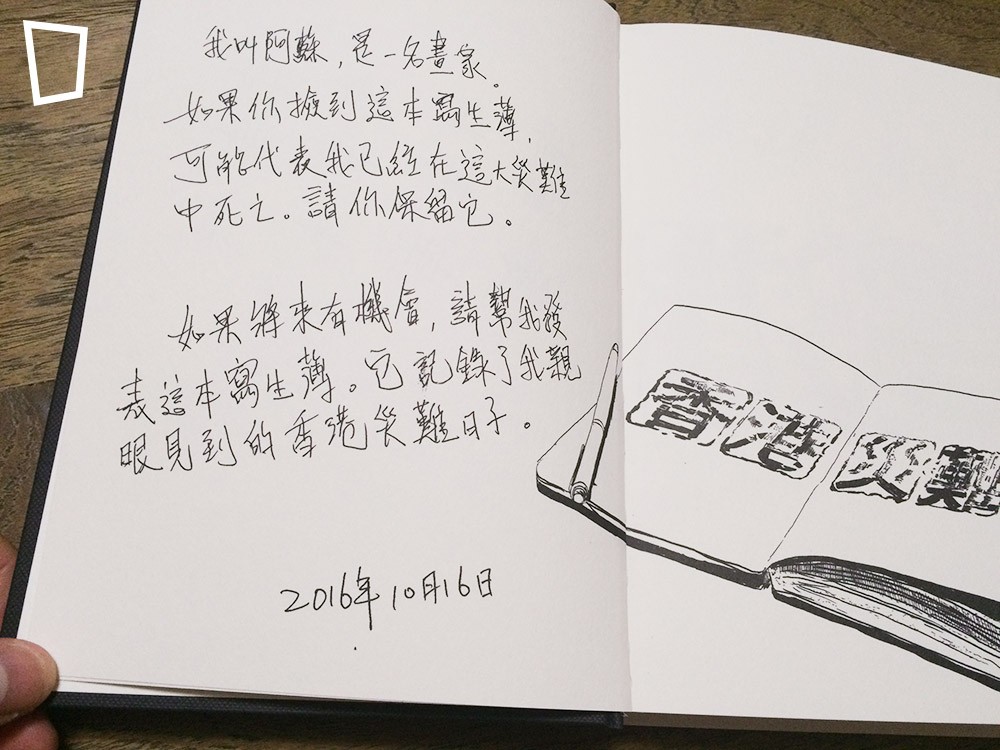 我叫阿蘇，是一名畫家。
如果你撿到這本寫生薄，
可能代表我已經在這大災難
中死亡。請你保留它。
如果將來有機會，請幫我發
表這本寫生薄。它記錄了我親
眼見到的香港災難日子。
2016年10月16日
香港災難